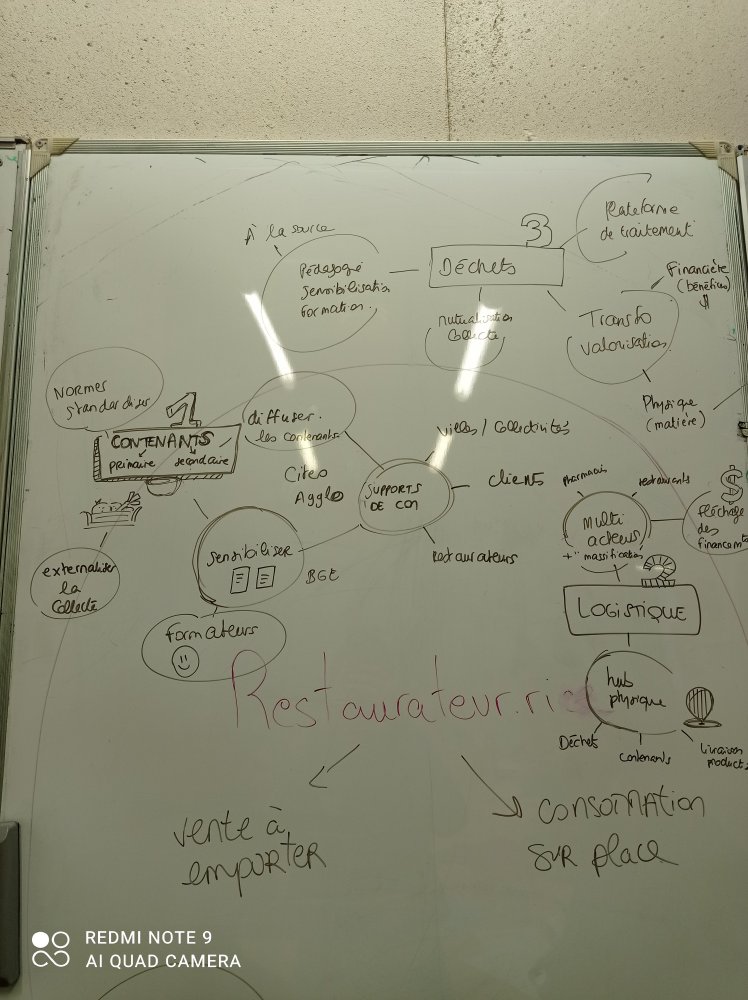 3
Déchets
À la source
Pédagogie
Sensibilisation
formation...
mutualisation
collecte
Plateforme
de traitement
Transfo
valorisation
Financière
(bénéfices)
$
Physique
(matière)
Normes
standardiser
1
CONTENANTS
primaire
secondaire
externaliser
la
collecte
diffuser.
les contenants
Cites
Agglo
SUPPORTS
DE COM
villes / Collectivités
clients
restaurateurs
Sensibiliser
BGE
formateurs
pharmacies
restaurants
Multi
acteurs
massification
$
fléchage
des
financements
2
LOGISTIQUE
hub
physique
Déchets
contenants
Livraison
Restaurateur.ri
vente à
emporter
consommation
sur place
REDMI NOTE 9
AI QUAD CAMERA